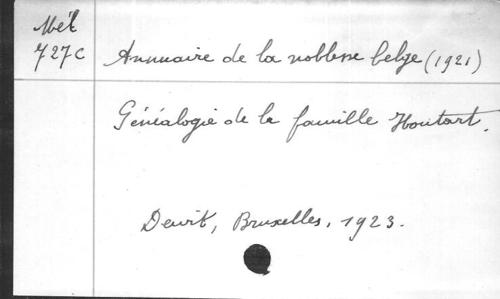 Mél
727C
Annuaire de la noblesse belge (1921)
Généalogie de la famille Houtart.
Dewit, Bruxelles, 1923.